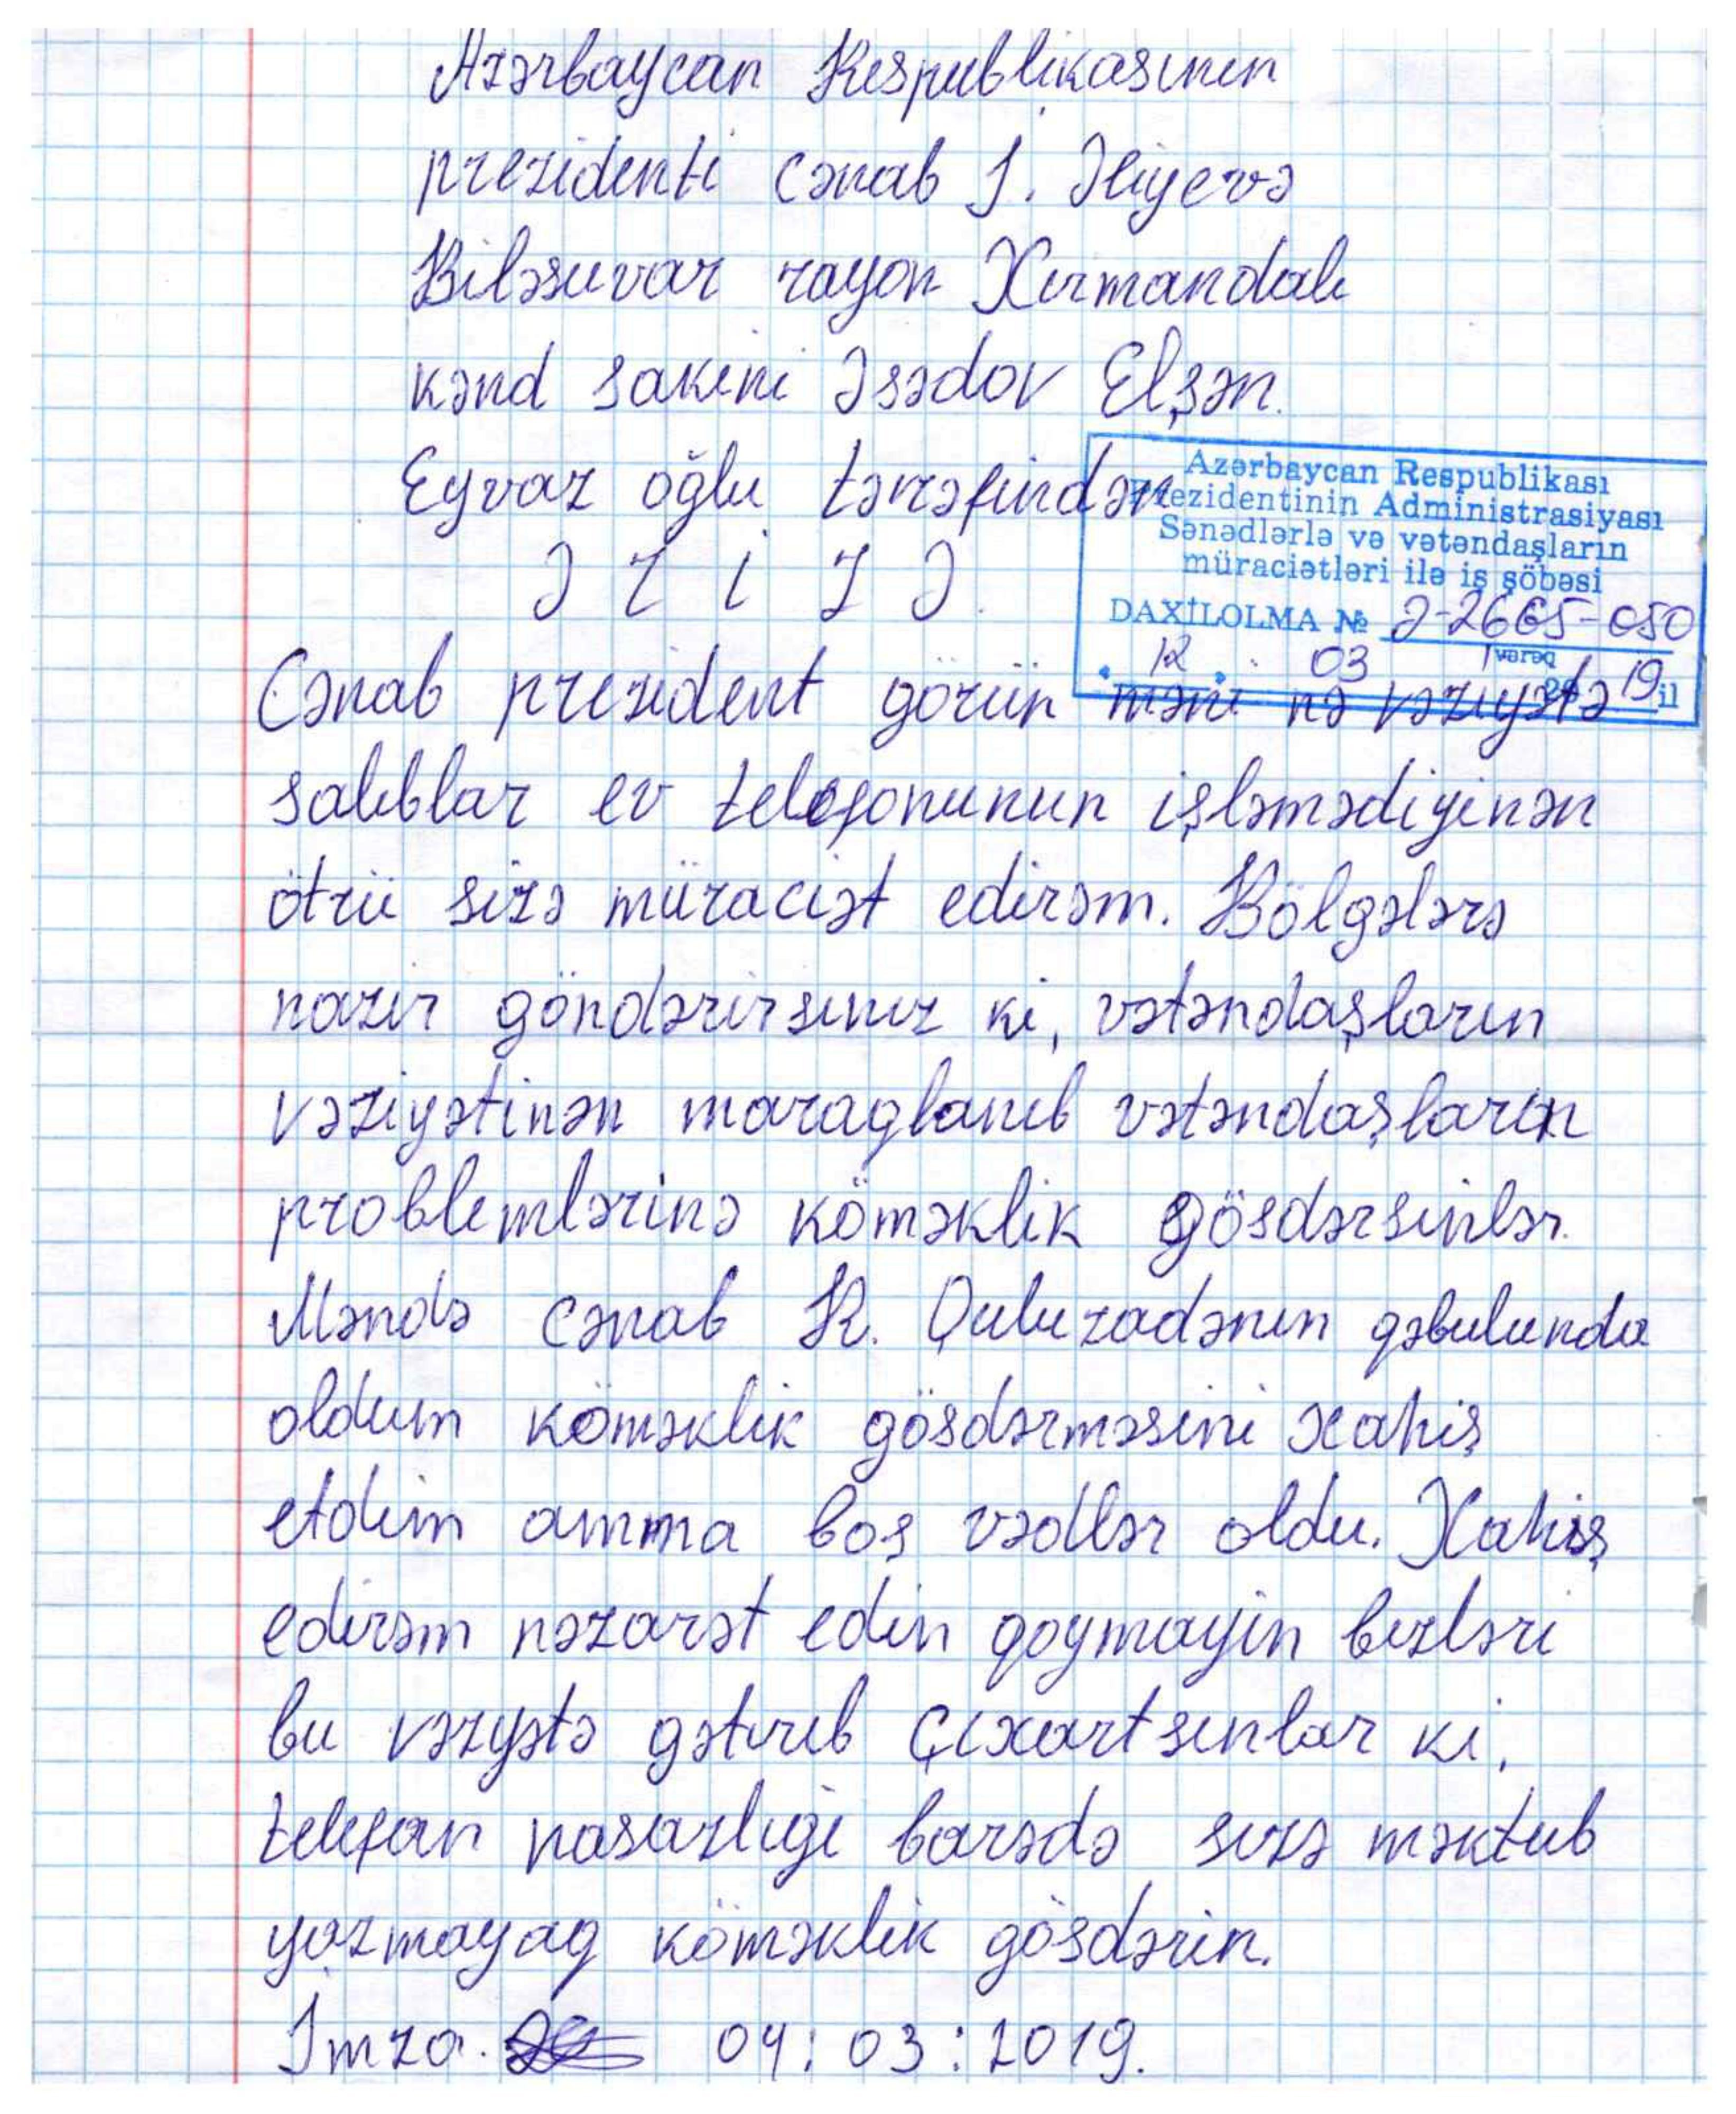 Azərbaycan Respublikasının
prezidenti cənab İ. Əliyevə
Biləsuvar rayon Xırmandalı
kənd sakini Əsədov Elşən.
Eyvaz oğlu tərəfindən
Ə R İ Z Ə.
Azərbaycan Respublikası
Prezidentinin Administrasiyası
Sənədlərlə və vətəndaşların
müraciətləri ilə iş şöbəsi
DAXİLOLMA № Ə-2665-050
12 . 03 1 vərəq
2019 il
Cənab prezident görün məni nə vəziyətə
salıblar ev telefonunun işləmədiyinən
ötrü sizə müraciət edirəm. Bölgələrə
nazir göndərirsiniz ki, vətəndaşların
vəziyətinən maraglanıb vətəndaşların
problemlərinə köməklik gösdərsinlər.
Məndə cənab K. Quluzadənin qəbulunda
oldum köməklik gösdərməsini xahiş
etdim amma boş vədlər oldu. Xahiş
edirəm nəzarət edin qoymayin bizləri
bu vəzyətə gətirib çıxartsınlar ki,
telefan nasazlıgi barədə sizə məktub
yazmayag köməklik gösdərin.
İmza. 04:03:2019.